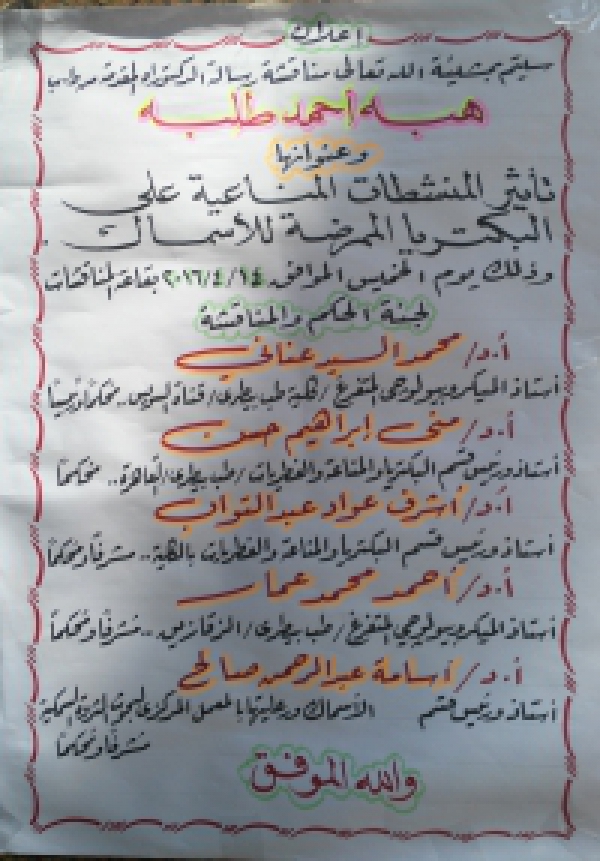 إعلان
سيتم بمشيئة الله تعالى مناقشة رسالة الدكتوراه المقدمة من ط.ب
هبه أحمد طلبه
وعنوانها
تأثير المنشطات المناعية على
البكتريا الممرضة للأسماك.
وذلك يوم الخميس الموافق ٢٠١٦/٤/١٤ بقاعة المناقشات
لجنة الحكم والمناقشة
أ.د/ محمد السيد عنانى
أستاذ الميكروبيولوجى المتفرغ / كلية طب بيطرى / قناة السويس .. محكماً رئيسياً
أ.د/ منى إبراهيم حسن
أستاذ ورئيس قسم البكتريا والمناعة والفطريات / طب بيطرى / القاهرة .. محكماً
أ.د/ أشرف عواد عبد التواب
أستاذ ورئيس قسم البكتريا والمناعة والفطريات بالكلية .. مشرفاً ومحكماً
أ.د/ أحمد محمد عمار
أستاذ الميكروبيولوجى المتفرغ / طب بيطرى / الزقازيق .. مشرفاً ومحكماً
أ.د/ أسامة عبد الرحمن صالح
أستاذ ورئيس قسم الأسماك ورعايتها بالمعمل المركزى لبحوث الثروة السمكية
مشرفاً ومحكماً
والله الموفق